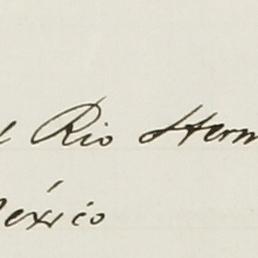 Rio Herm
éxico